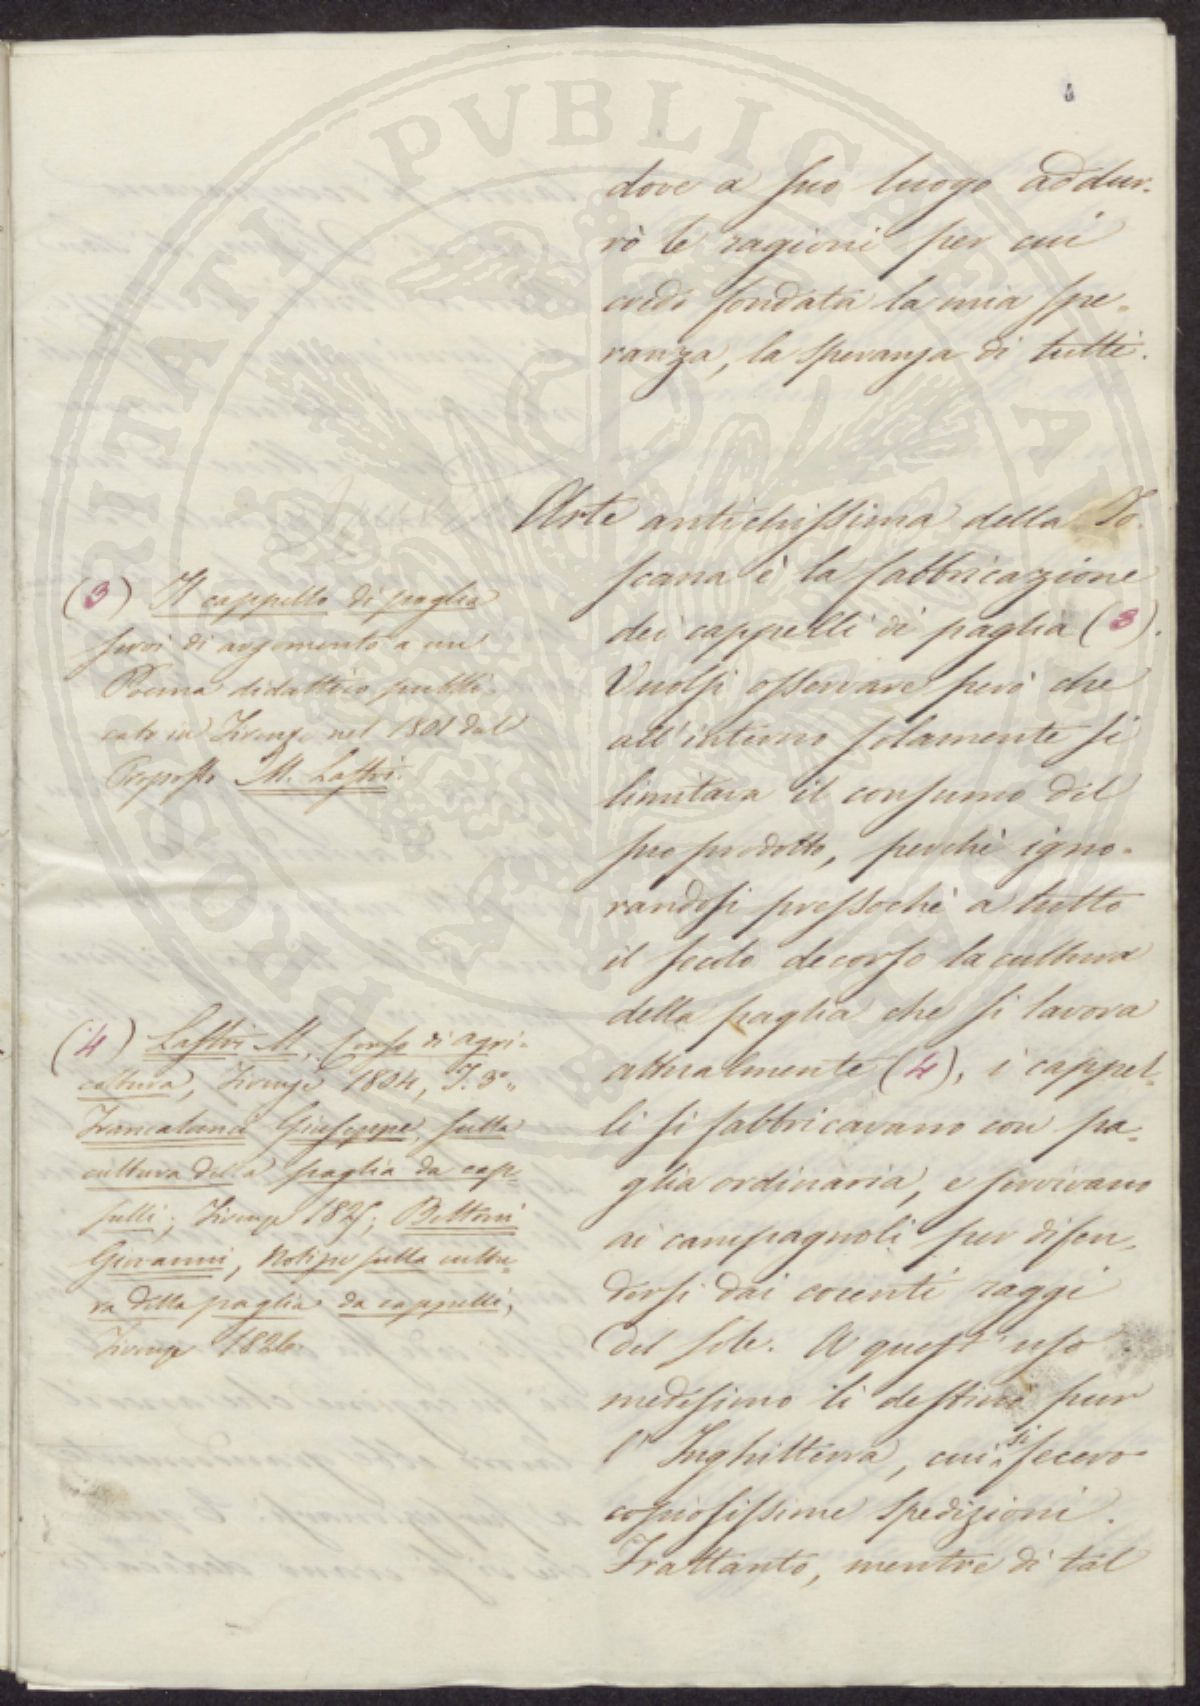 dove a suo luogo addur-
rò le ragioni per cui
credo fondata la mia spe-
ranza, la speranza di tutti.
Arte antichissima della To-
scana è la fabbricazione
dei cappelli di paglia (3).
Vuolsi osservare però che
all'interno solamente si
limitava il consumo del
suo prodotto, perchè igno-
randosi pressochè a tutto
il secolo decorso la cultura
della paglia che si lavora
attualmente (4), i cappel-
li si fabbricavano con pa-
glia ordinaria, e servivano
ai campagnoli per difen-
dersi dai cocenti raggi
del sole. A quest'uso
medesimo li destinò pur
l'Inghilterra, cui si fecero
copiosissime spedizioni.
Frattanto, mentre di tal
(3) Il cappello di paglia
servì di argomento a un
Poema didattico pubbli-
cato in Firenze nel 1801 dal
Proposto M. Lastri.
(4) Lastri M., Corso di agri-
coltura, Firenze 1804, T. 3°,
Giuseppe, sulla
cultura della paglia da cap-
pelli; Firenze 1825; Bettoni
Giovanni, Notizie sulla cultu-
ra della paglia da cappelli,
Firenze 1826.
PROSPERITATI PVBLICAE AVGENDAE